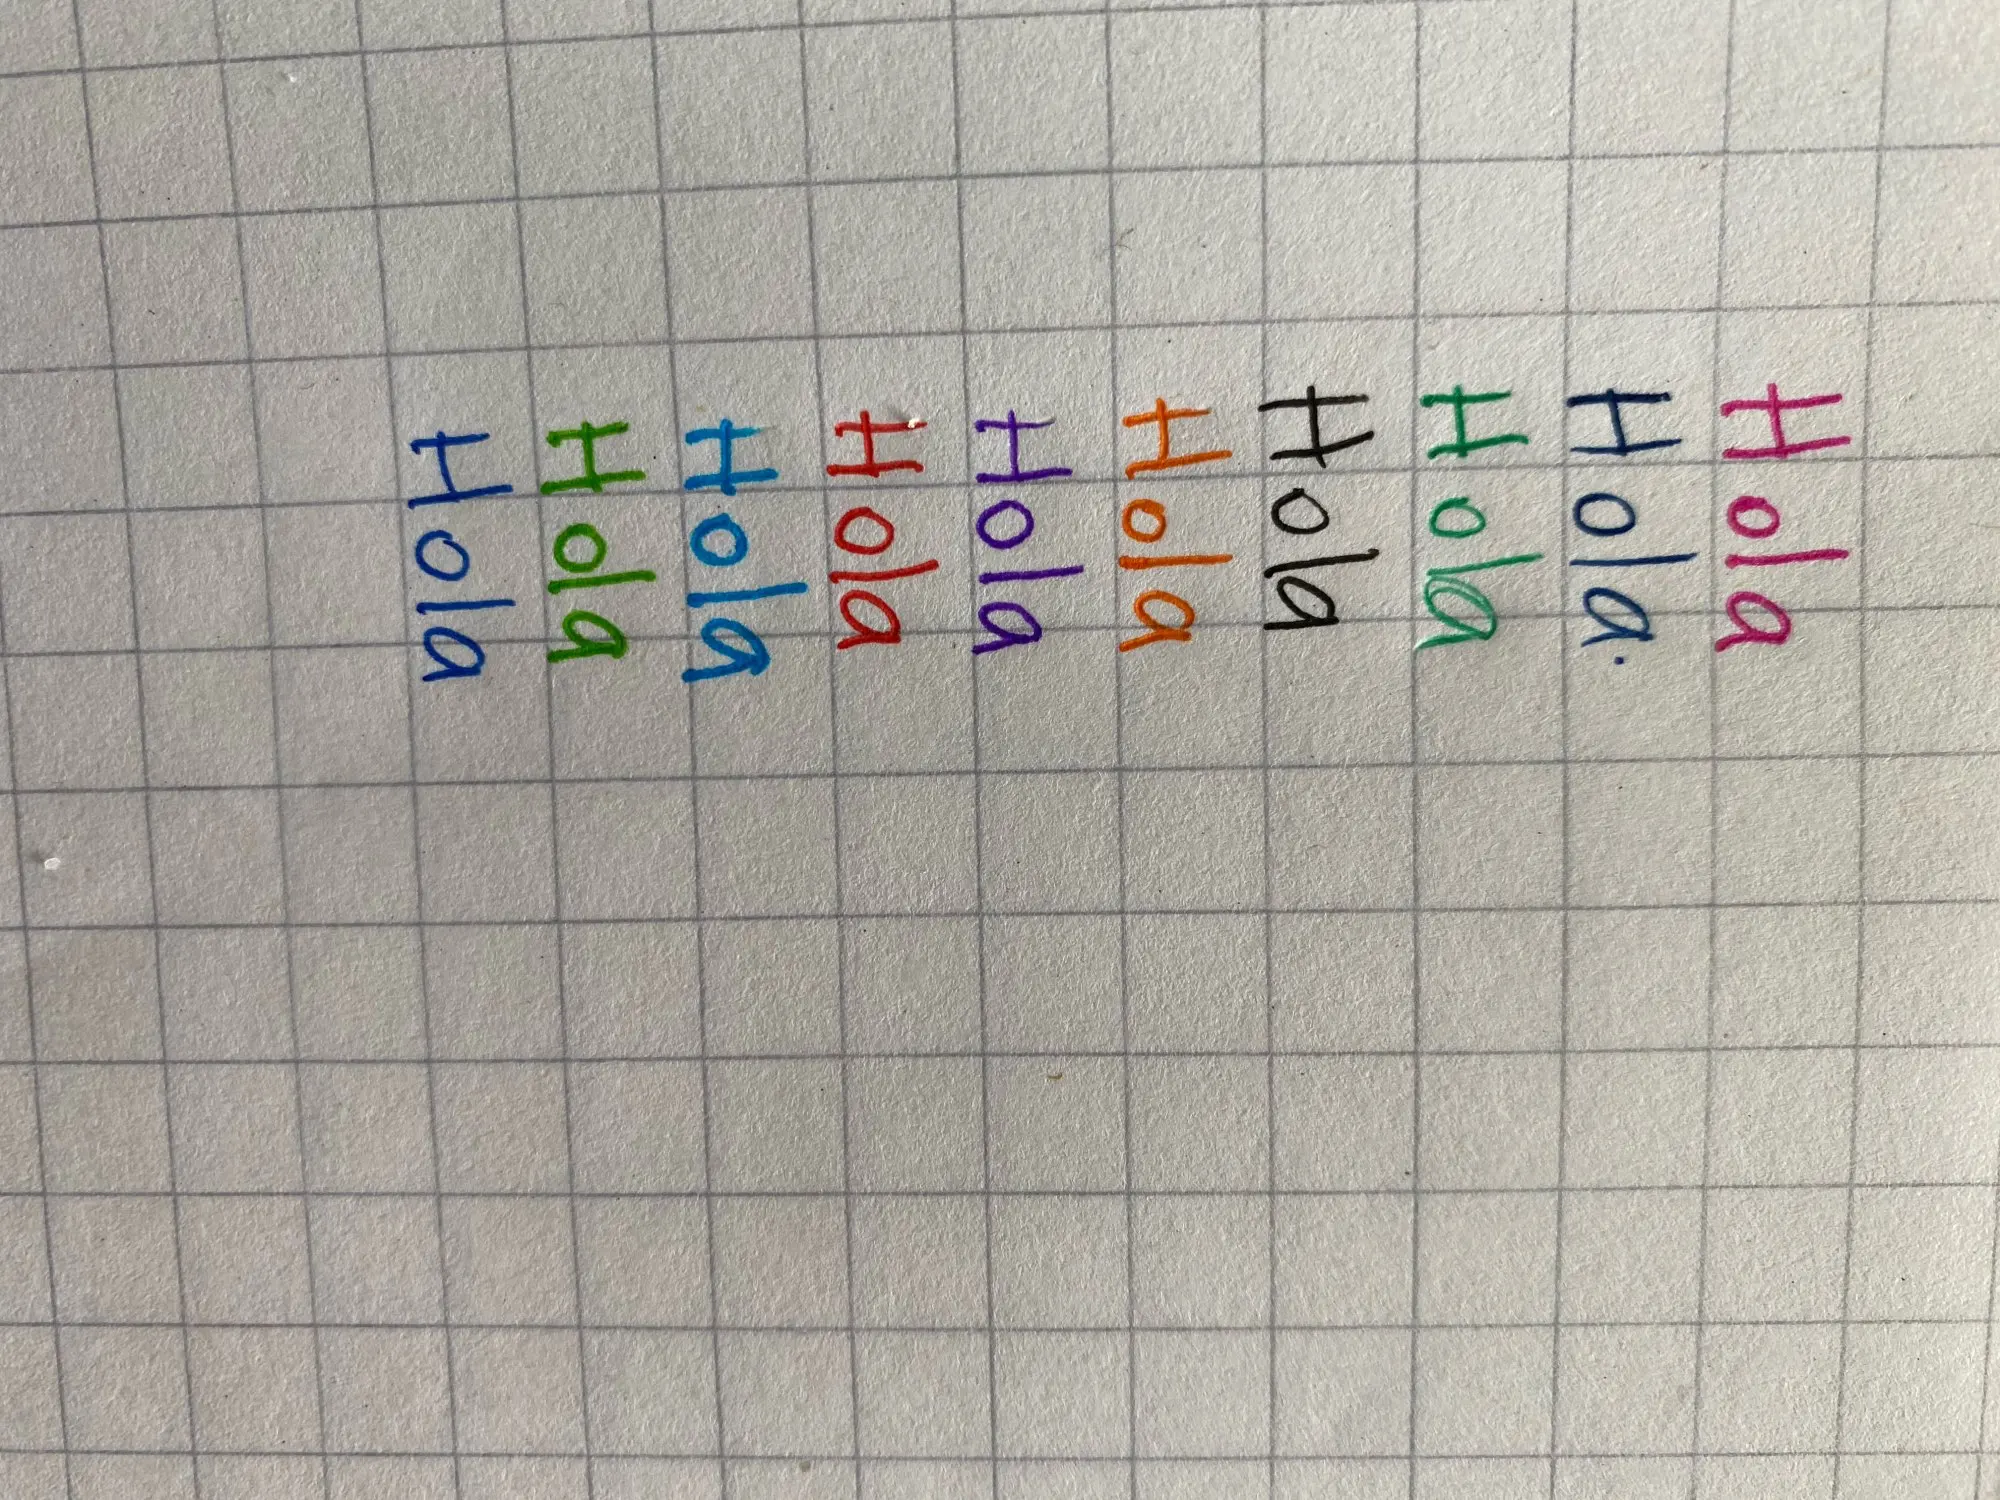 Hola
Hola
Hola
Hola
Hola
Hola
Hola
Hola
Hola
Hola